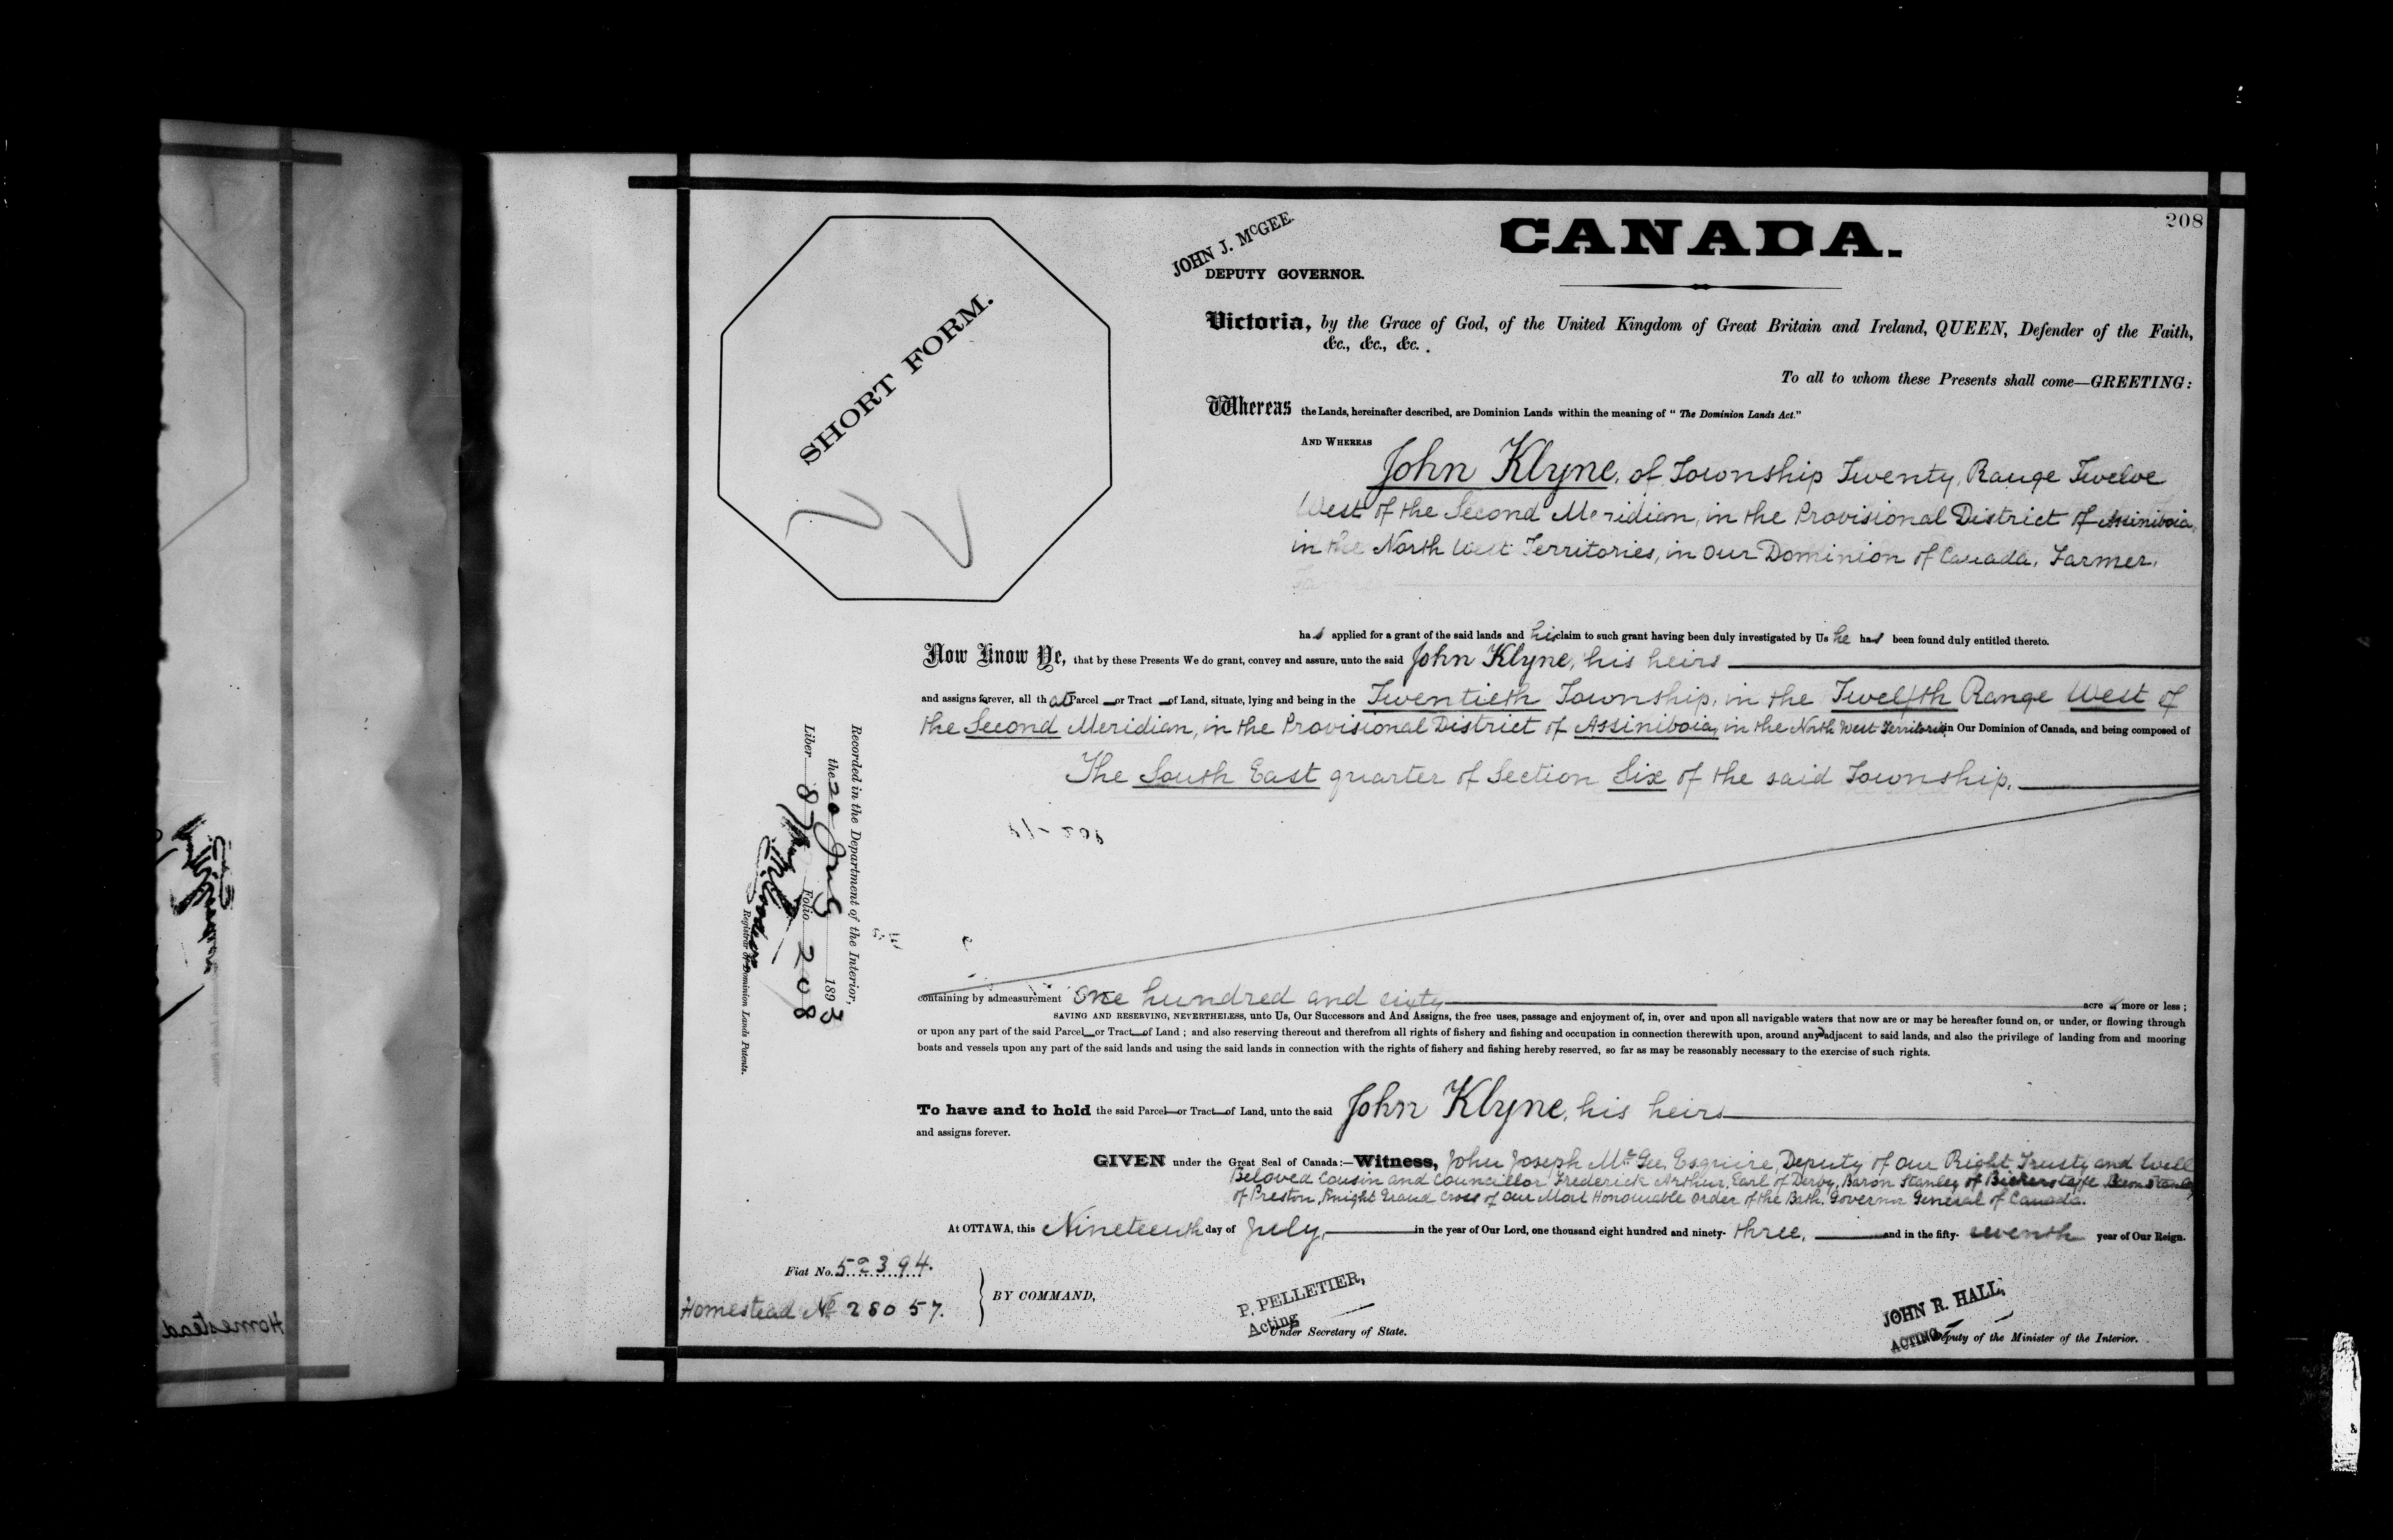 208
CANADA.
JOHN J. McGEE.
DEPUTY GOVERNOR.
SHORT FORM.
Victoria, by the Grace of God, of the United Kingdom of Great Britain and Ireland, QUEEN, Defender of the Faith,
&c., &c., &c.
To all to whom these Presents shall come—GREETING:
Whereas the Lands, hereinafter described, are Dominion Lands within the meaning of "The Dominion Lands Act."
AND WHEREAS
John Klyne, of Township Twenty, Range Twelve
West of the Second Meridian, in the Provisional District of Assiniboia,
in the North West Territories, in Our Dominion of Canada, Farmer.
has applied for a grant of the said lands and his claim to such grant having been duly investigated by Us he has been found duly entitled thereto.
Now Know Ye, that by these Presents We do grant, convey and assure, unto the said John Klyne, his heirs
and assigns forever, all that Parcel or Tract of Land, situate, lying and being in the Twentieth Township, in the Twelfth Range West of
the Second Meridian, in the Provisional District of Assiniboia, in the North West Territories in Our Dominion of Canada, and being composed of
The South East quarter of Section Six of the said Township.
Recorded in the Department of the Interior,
the 20 Aug 1893
Liber 87 Folio 208
Registrar of Dominion Lands Patents.
containing by admeasurement One hundred and sixty acres more or less;
SAVING AND RESERVING, NEVERTHELESS, unto Us, Our Successors and And Assigns, the free uses, passage and enjoyment of, in, over and upon all navigable waters that now are or may be hereafter found on, or under, or flowing through
or upon any part of the said Parcel or Tract of Land; and also reserving thereout and therefrom all rights of fishery and fishing and occupation in connection therewith upon, around and adjacent to said lands, and also the privilege of landing from and mooring
boats and vessels upon any part of the said lands and using the said lands in connection with the rights of fishery and fishing hereby reserved, so far as may be reasonably necessary to the exercise of such rights.
To have and to hold the said Parcel or Tract of Land, unto the said John Klyne, his heirs
and assigns forever.
GIVEN under the Great Seal of Canada:—Witness, John Joseph McGee, Esquire, Deputy of Our Right Trusty and Well
Beloved Cousin and Councillor Frederick Arthur, Earl of Derby, Baron Stanley of Bickerstaffe, Baron Stanley
of Preston, Knight Grand Cross of Our Most Honourable Order of the Bath, Governor General of Canada.
At OTTAWA, this Nineteenth day of July, in the year of Our Lord, one thousand eight hundred and ninety-three, and in the fifty-seventh year of Our Reign.
Fiat No. 52394.
Homestead No 28057.
BY COMMAND,
P. PELLETIER,
Acting Under Secretary of State.
JOHN R. HALL,
ACTING Deputy of the Minister of the Interior.